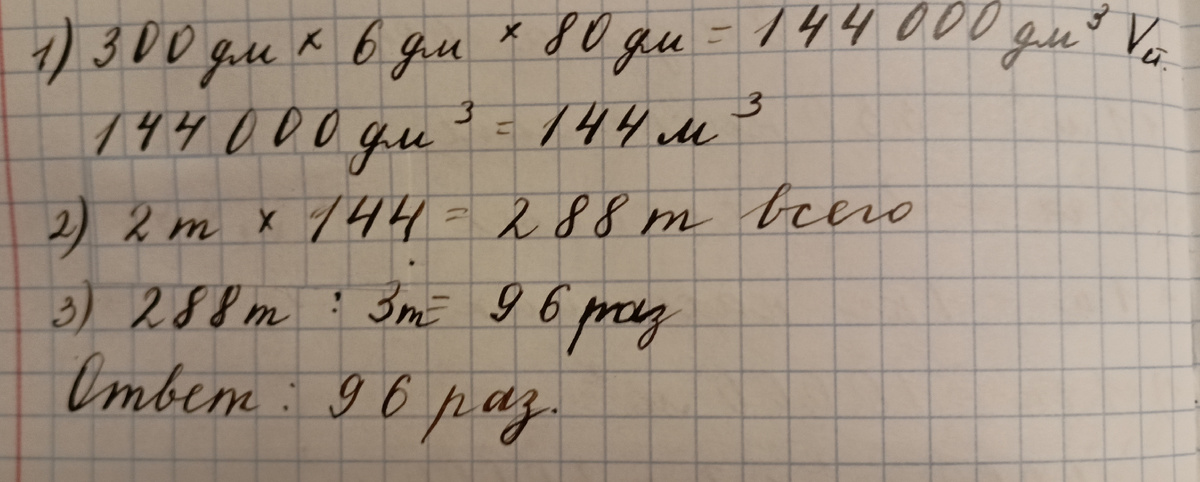 1) 300 дм × 6 дм × 80 дм = 144 000 дм³ Vй.
144 000 дм³ = 144 м³
2) 2 т × 144 = 288 т всего
3) 288 т : 3 т = 96 раз
Ответ: 96 раз.